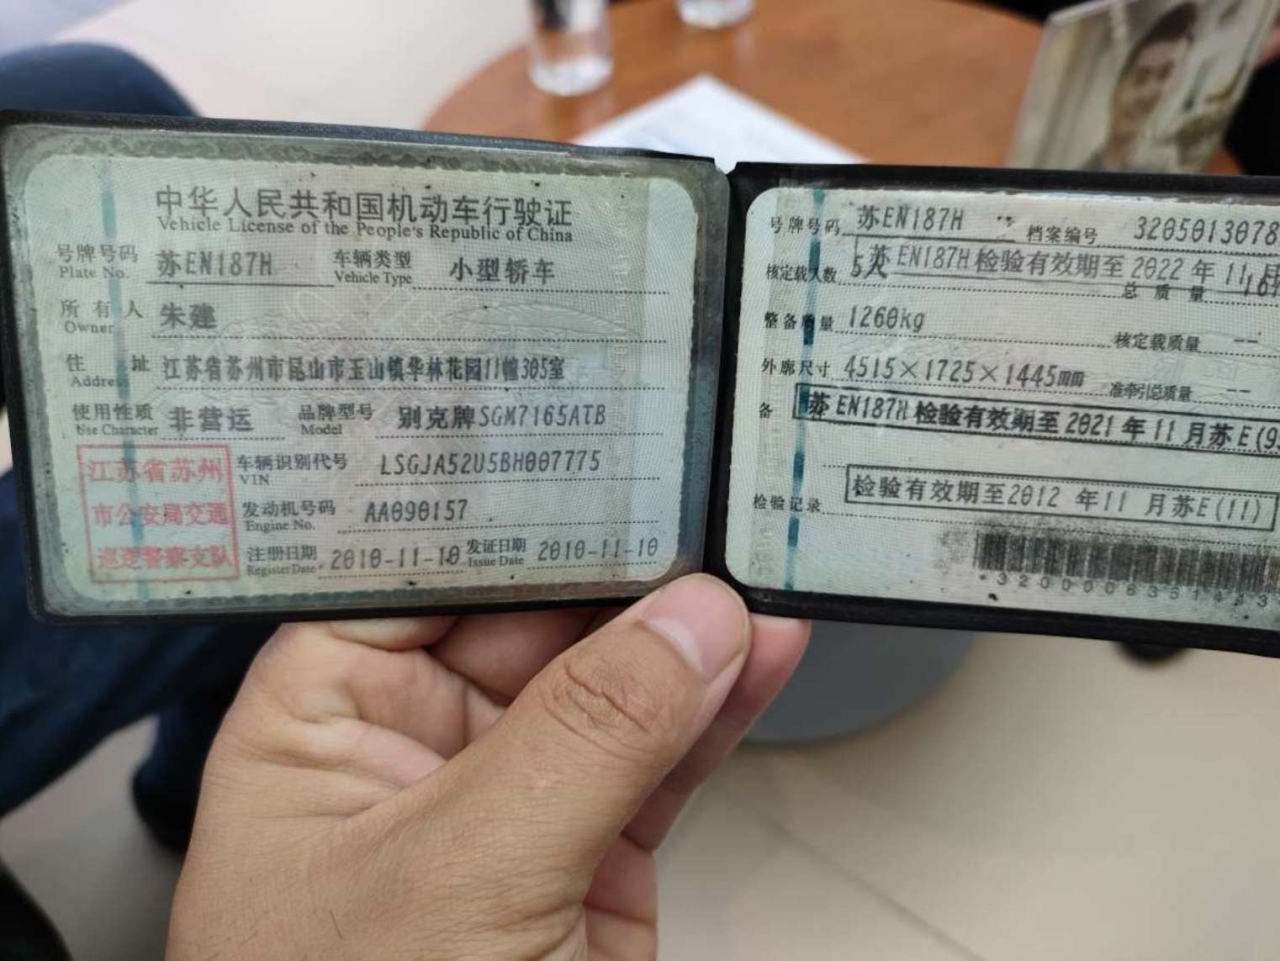 中华人民共和国机动车行驶证
Vehicle License of the People's Republic of China
号牌号码 苏EN187H 车辆类型 小型轿车
Plate No. Vehicle Type
所有人 朱建
Owner
住址 江苏省苏州市昆山市玉山镇华林花园11幢305室
Address
使用性质 非营运 品牌型号 别克牌SGM7165ATB
Use Character Model
江苏省苏州
市公安局交通
巡逻警察支队
车辆识别代号 LSGJA52U5BH007775
VIN
发动机号码 AA090157
Engine No.
注册日期 2010-11-10 发证日期 2010-11-10
Register Date Issue Date
号牌号码 苏EN187H 档案编号 3205013078
苏EN187H检验有效期至2022年11月
核定载人数 5人 总质量
整备质量 1260kg 核定载质量 --
外廓尺寸 4515×1725×1445mm 准牵引总质量 --
备 苏EN187H检验有效期至2021年11月苏E(9
检验有效期至2012年11月苏E(11)
检验记录